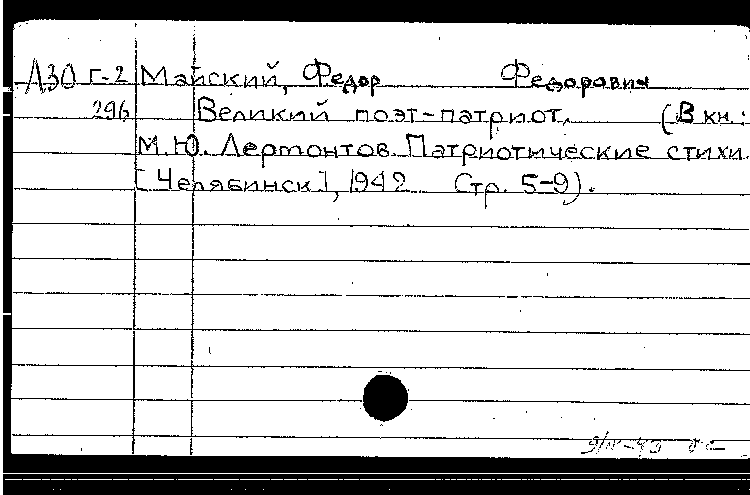 А30 Г-2 Майский, Федор Федорович
296 Великий поэт-патриот. (В кн.:
М.Ю. Лермонтов. Патриотические стихи.
[Челябинск], 1942 Стр. 5-9).